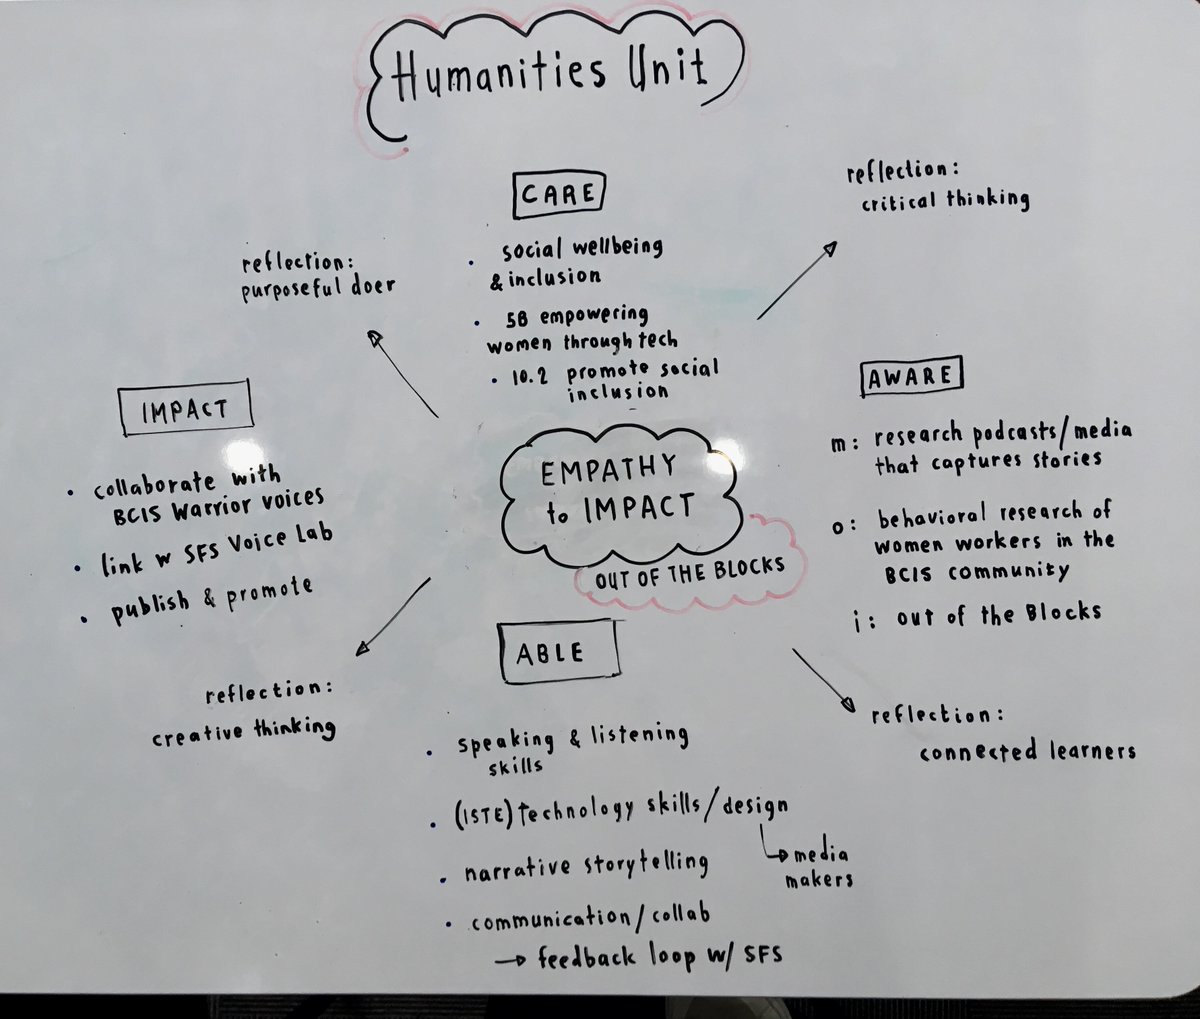 Humanities Unit
CARE
social wellbeing
& inclusion
5B empowering
women through tech
10.2 promote social
inclusion
reflection:
critical thinking
AWARE
m: research podcasts/media
that captures stories
o: behavioral research of
women workers in the
BCIS community
i: out of the Blocks
reflection:
connected learners
EMPATHY
to IMPACT
OUT OF THE BLOCKS
ABLE
speaking & listening
skills
(ISTE) technology skills/design
media
makers
narrative storytelling
communication/collab
→ feedback loop w/ SFS
reflection:
creative thinking
IMPACT
collaborate with
BCIS Warrior voices
link w SFS Voice Lab
publish & promote
reflection:
purposeful doer